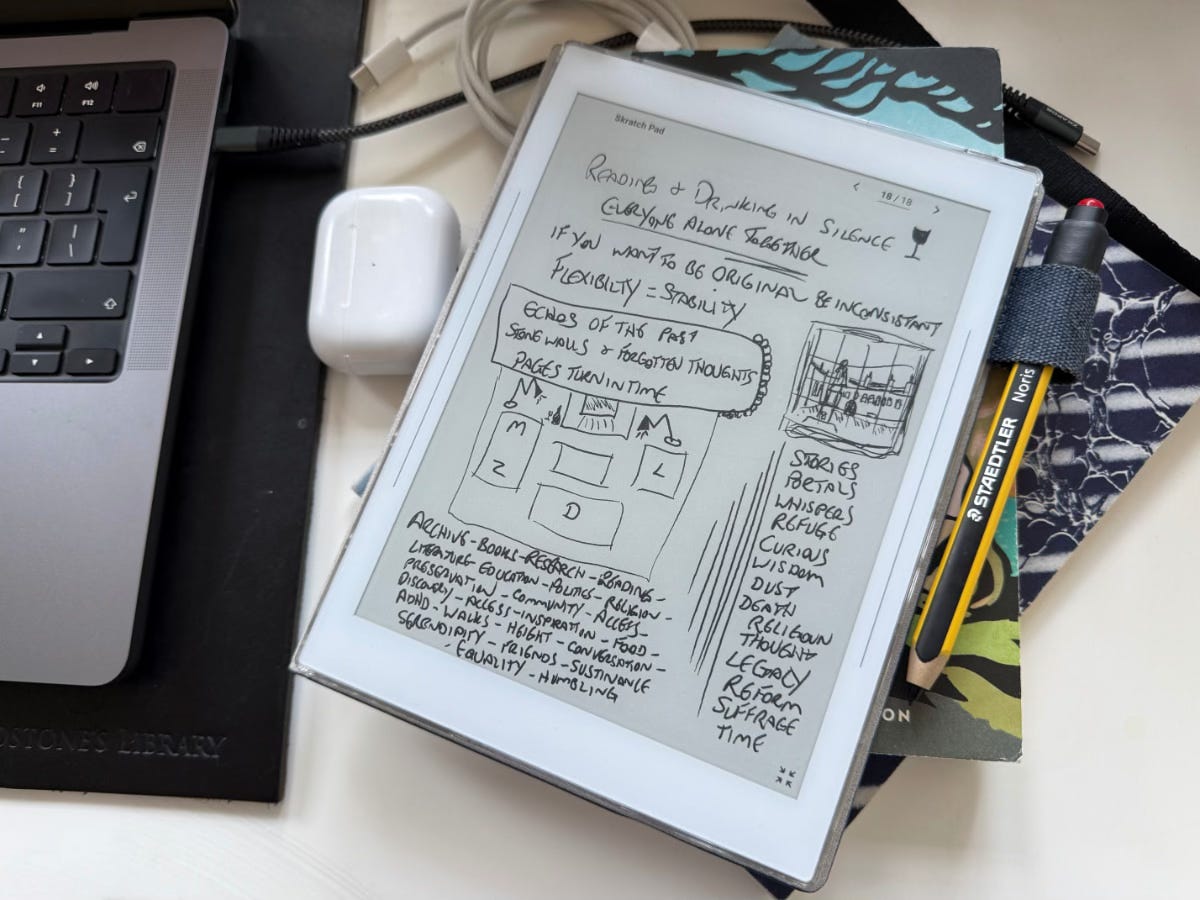 F11
F12
DSTONE'S LIBRARY
Skratch Pad
< 18 / 18 >
READING & DRINKING IN SILENCE
EVERYONE ALONE TOGETHER
IF YOU WANT TO BE ORIGINAL BE INCONSISTANT
FLEXIBILTY = STABILITY
ECHOS OF THE PAST
STONE WALLS & FORGOTTEN THOUGHTS
PAGES TURN IN TIME
M
Z
L
D
ARCHIVE - BOOKS - RESEARCH - READING -
LITERATURE EDUCATION - POLITICS - RELIGION -
PRESERVATION - COMMUNITY - ACCESS -
DISCOVERY - ACCESS - INSPIRATION - FOOD -
ADHD - WALKS - HEIGHT - CONVERSATION -
SERENDIPITY - FRIENDS - SUSTINANCE
- EQUALITY - HUMBLING
STORIES
PORTALS
WHISPERS
REFUGE
CURIOUS
WISDOM
DUST
DEATH
RELIGOUN
THOUGHT
LEGACY
REFORM
SUFFRAGE
TIME
STAEDTLER Noris
ON